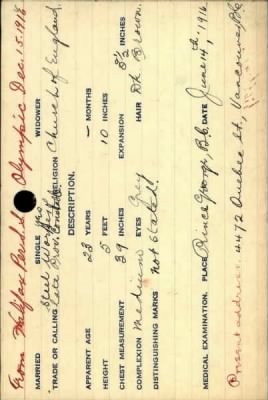 From Halifax per S.S. Olympic Dec. 15. 1918
MARRIED SINGLE yes WIDOWER
TRADE OR CALLING Steel Worker RELIGION Church of England
late Prov. Constable
DESCRIPTION.
APPARENT AGE 23 YEARS — MONTHS
HEIGHT 5 FEET 10 INCHES
CHEST MEASUREMENT 39 INCHES EXPANSION 3½ INCHES
COMPLEXION Medium EYES Grey HAIR Dk Brown.
DISTINGUISHING MARKS Not Stated.
MEDICAL EXAMINATION. PLACE Prince George, B.C. DATE June 14th, 1916
Present address: 4472 Quebec St., Vancouver, B.C.